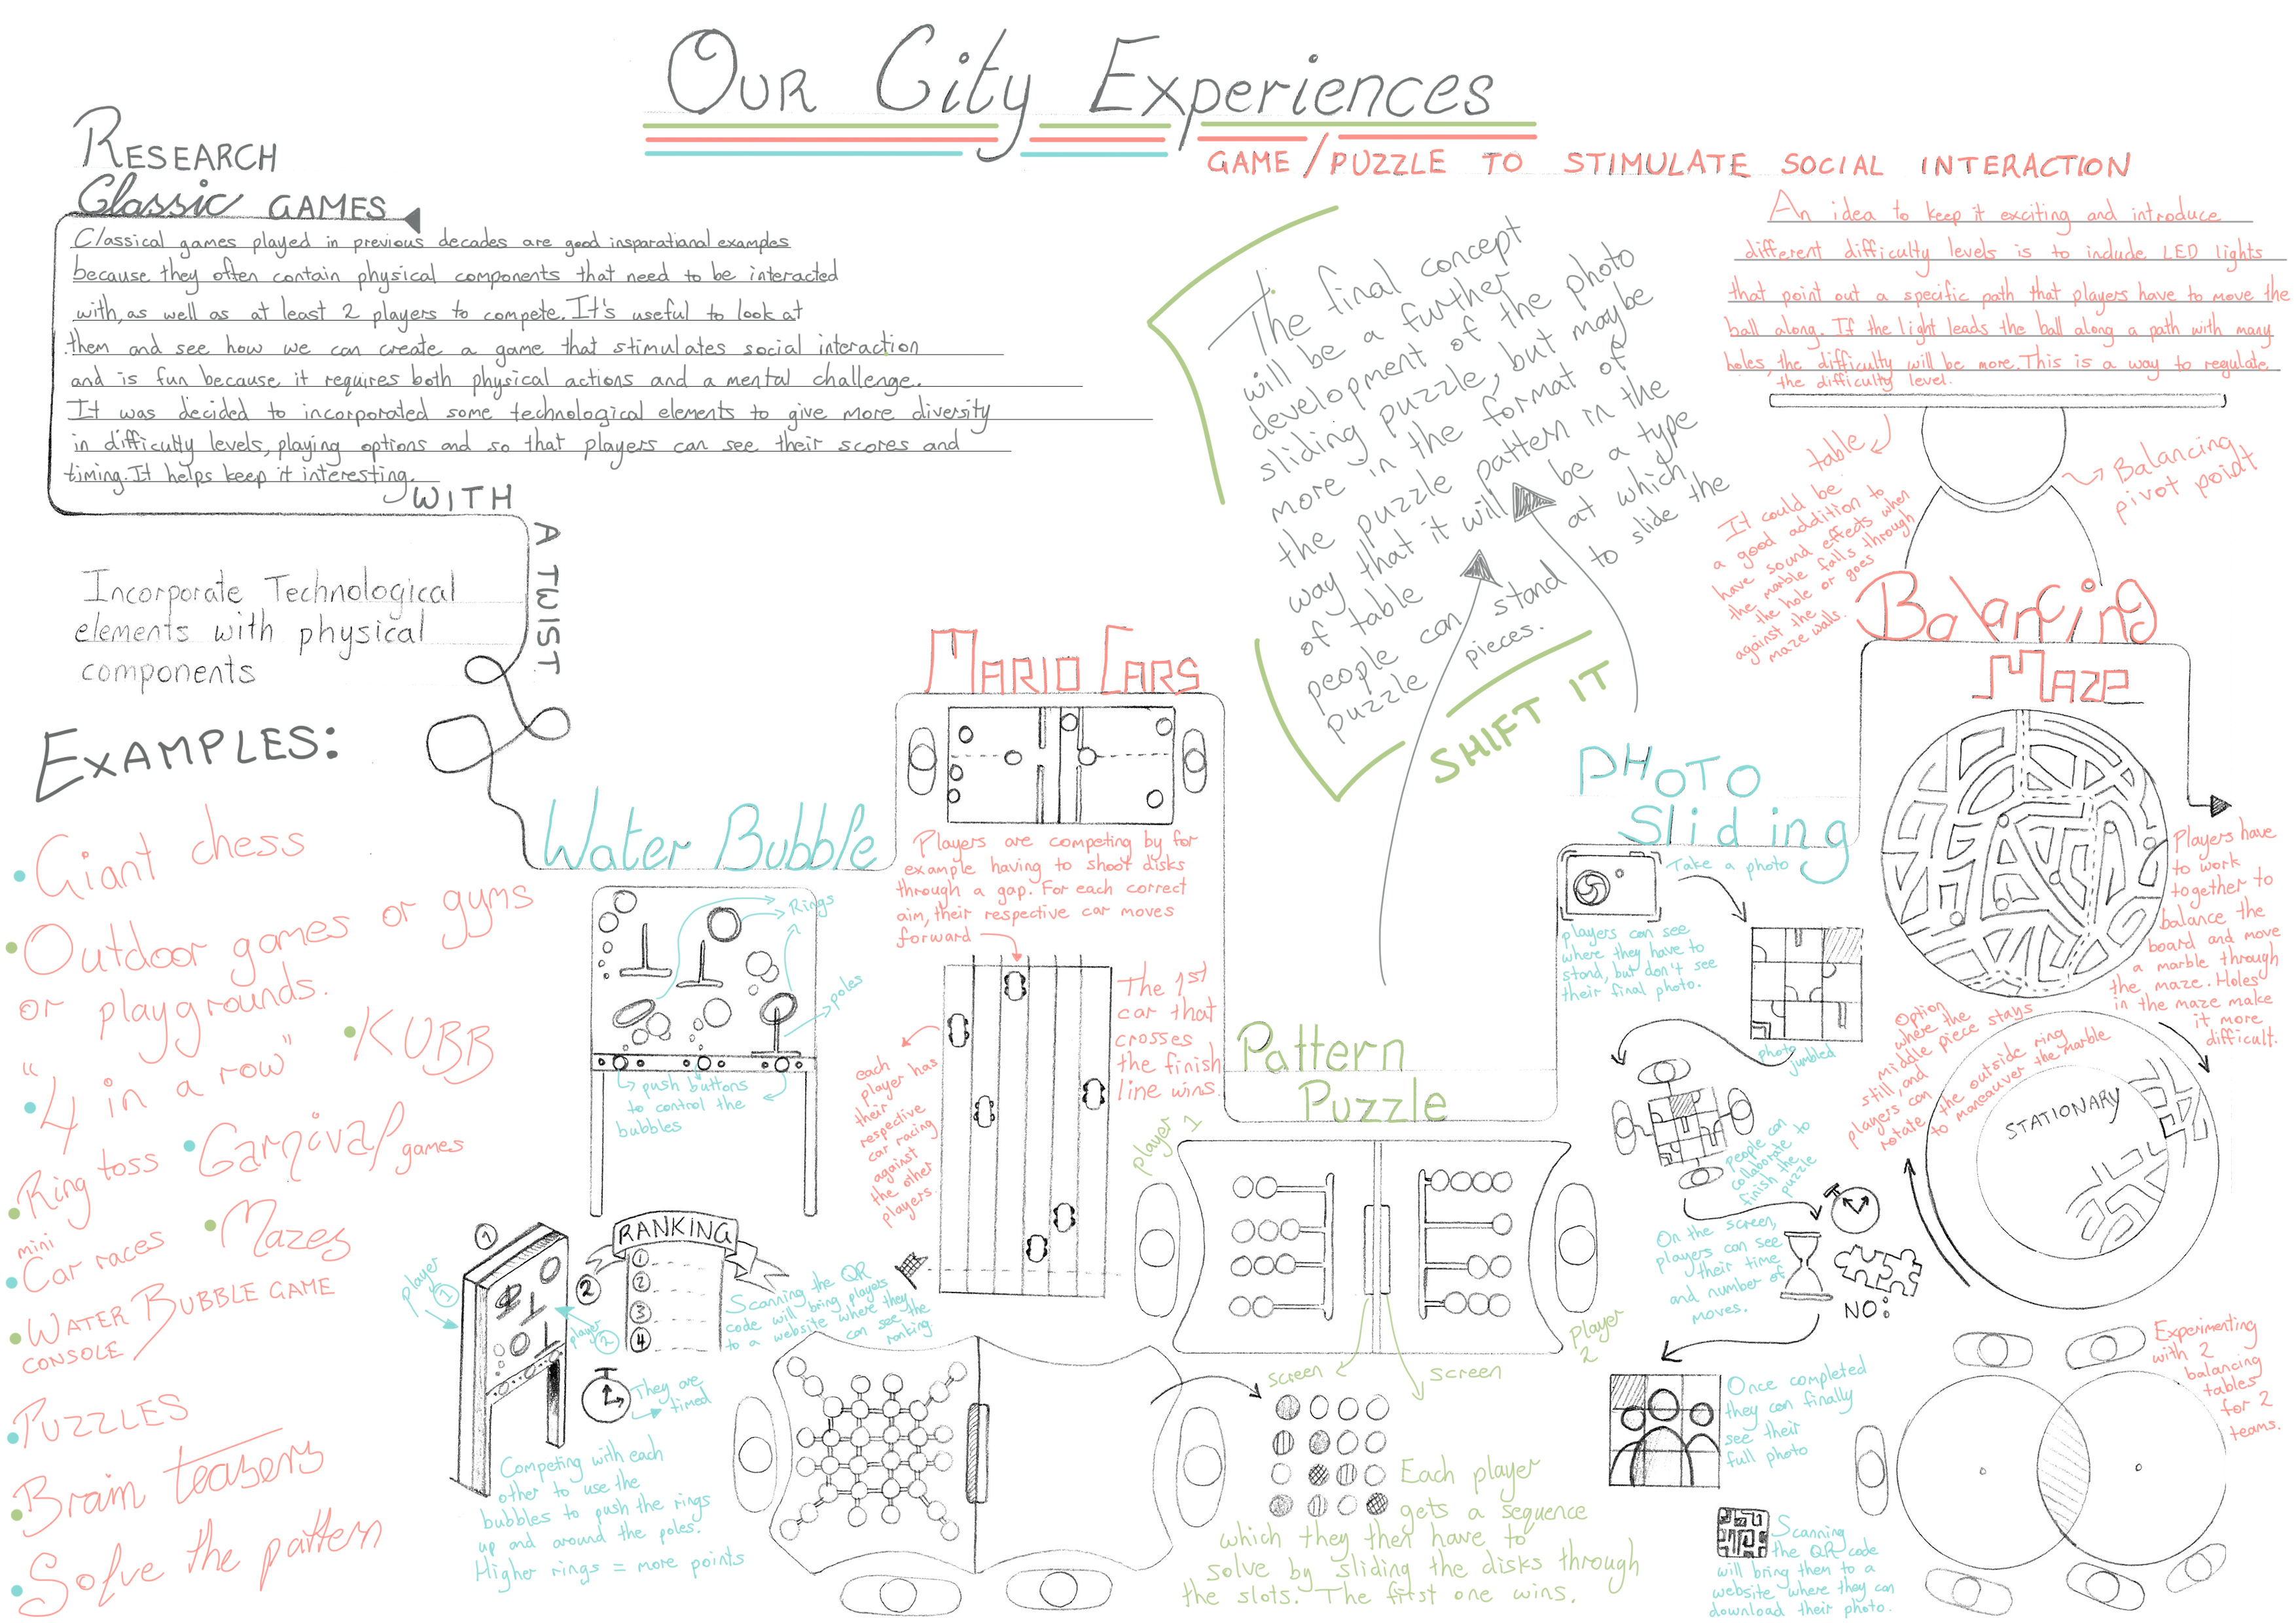 OUR City Experiences
GAME/PUZZLE TO STIMULATE SOCIAL INTERACTION
RESEARCH
Classic GAMES
Classical games played in previous decades are good insparational examples
because they often contain physical components that need to be interacted
with, as well as at least 2 players to compete. It's useful to look at
them and see how we can create a game that stimulates social interaction
and is fun because it requires both physical actions and a mental challenge.
It was decided to incorporated some technological elements to give more diversity
in difficulty levels, playing options and so that players can see their scores and
timing. It helps keep it interesting.
WITH
A TWIST
Incorporate Technological
elements with physical
components
EXAMPLES:
• Giant chess
• Outdoor games or gyms
or playgrounds.
• "4 in a row"
• KUBB
• Ring toss
• Carnival games
• mini
Car races
• Mazes
• WATER BUBBLE GAME
CONSOLE
• PUZZLES
• Brain teasers
• Solve the pattern
Water Bubble
Rings
poles
push buttons
to control the
bubbles
1
player
1
player
2
2
RANKING
1
2
3
4
Scanning the QR
code will bring players
to a website where they
can see the
ranking
They are
timed
Competing with each
other to use the
bubbles to push the rings
up and around the poles.
Higher rings = more points
MARIO CARS
Players are competing by for
example having to shoot disks
through a gap. For each correct
aim, their respective car moves
forward
The 1st
car that
crosses
the finish
line wins.
each
player has
their
respective
car racing
against
the other
players.
The final concept
will be a further
development of the photo
sliding puzzle, but maybe
more in the format of
the puzzle pattern in the
way that it will be a type
of table at which
people can stand to slide the
puzzle pieces.
SHIFT IT
Pattern
Puzzle
player 1
player
2
screen
screen
Each player
gets a sequence
which they then have to
solve by sliding the disks through
the slots. The first one wins.
PHOTO
Sliding
Take a photo
players can see
where they have to
stand, but don't see
their final photo.
photo
jumbled
people can
collaborate to
finish the
puzzle
On the screen,
players can see
their time
and number of
moves.
NO:
Once completed
they can finally
see their
full photo
Scanning
the QR code
will bring them to a
website where they can
download their photo.
An idea to keep it exciting and introduce
different difficulty levels is to include LED lights
that point out a specific path that players have to move the
ball along. If the light leads the ball along a path with many
holes, the difficulty will be more. This is a way to regulate
the difficulty level.
table
Balancing
pivot poidt
It could be
a good addition to
have sound effects when
the marble falls through
the hole or goes
against the
maze walls.
Balancing
MAZE
Players have
to work
together to
balance the
board and move
a marble through
the maze. Holes
in the maze make
it more
difficult.
Option
where the
middle piece stays
still, and
players can
rotate the outside ring
to maneauver the marble
STATIONARY
Experimenting
with 2
balancing
tables
for 2
teams.